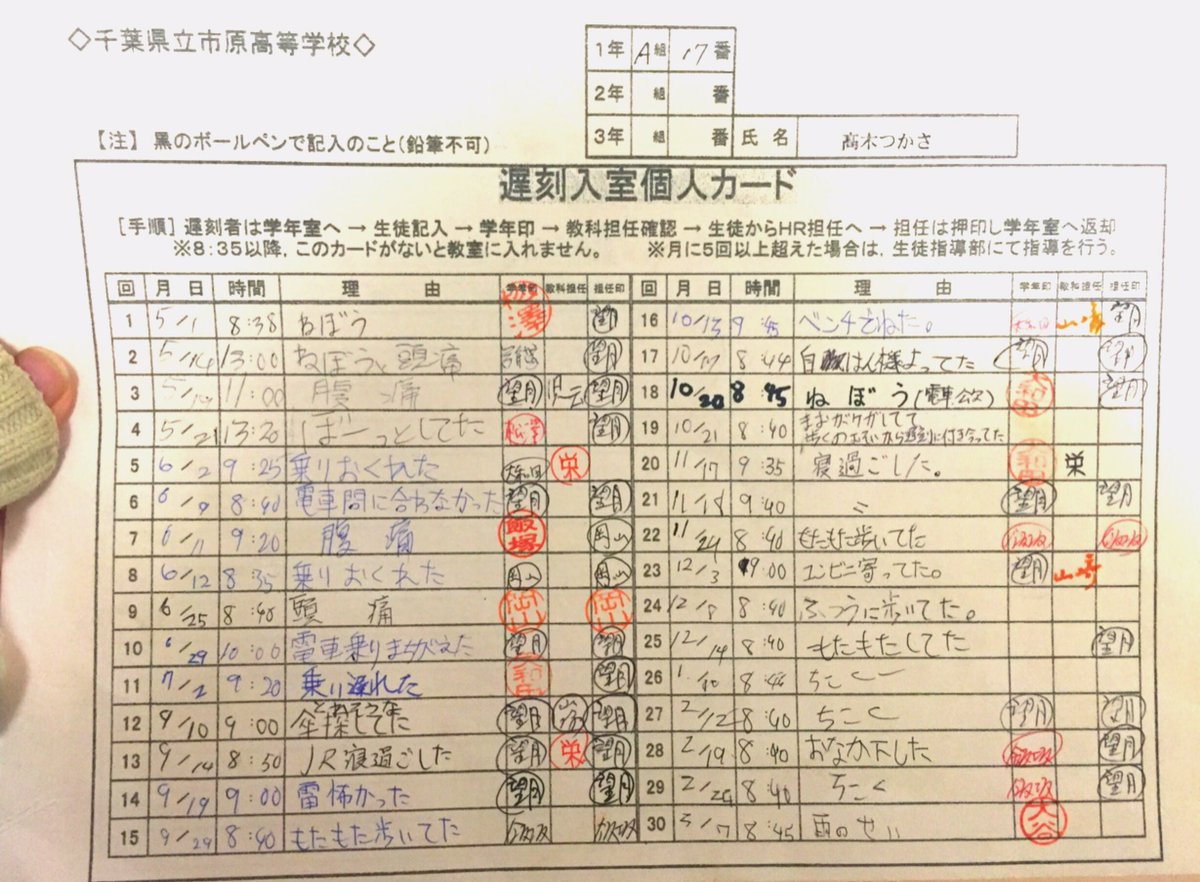 ◇千葉県立市原高等学校◇
1年 A組 17番
2年 組 番
3年 組 番 氏名 高木つかさ
【注】 黒のボールペンで記入のこと(鉛筆不可)
遅刻入室個人カード
[手順] 遅刻者は学年室へ → 生徒記入 → 学年印 → 教科担任確認 → 生徒からHR担任へ → 担任は押印し学年室へ返却
※8:35以降,このカードがないと教室に入れません。 ※月に5回以上超えた場合は,生徒指導部にて指導を行う。
回 月日 時間 理由 学年印 教科担任 担任印
1 5/1 8:38 ねぼう 望月
2 5/14 13:00 ねぼうと頭痛 望月
3 5/19 11:00 腹痛 望月 望月
4 5/21 13:20 ぼーっとしてた 望月
5 6/2 9:25 乗りおくれた 大和田 栄
6 6/9 8:40 電車間に合わなかった 望月 望月
7 6/11 9:20 腹痛 飯塚 岡山
8 6/12 8:35 乗りおくれた 岡山 岡山
9 6/25 8:40 頭痛 岡山 岡山
10 6/29 10:00 電車乗りまちがえた 望月 望月
11 7/2 9:20 乗り遅れした 望月
12 9/10 9:00 傘探してた 望月 望月
13 9/14 8:50 JR寝過ごした 望月 栄 望月
14 9/19 9:00 雷怖かった 望月 望月
15 9/29 8:40 もたもた歩いてた 飯坂 飯坂
回 月日 時間 理由 学年印 教科担任 担任印
16 10/13 9:45 ベンチでねた。 山嵜 望月
17 10/17 8:44 白ごはん様よってた 望月
18 10/20 8:45 ねぼう(電車公欠) 望月
19 10/21 8:40 歩くのおそいから遅刻に付き合ってた
20 11/17 9:35 寝過ごした。 栄
21 11/18 9:40 〃 望月 望月
22 11/24 8:40 もたもた歩いてた 飯坂 飯坂
23 12/3 9:00 コンビニ寄ってた。 望月 山嵜
24 12/8 8:40 ふつうに歩いてた。
25 12/14 8:40 もたもたしてた 望月
26 1/10 8:44 ちこく
27 2/12 8:40 ちこく 望月 望月
28 2/19 8:40 おなか下した 飯坂 望月
29 2/29 8:40 ちこく 飯坂 望月
30 3/7 8:45 雨のせい 大谷